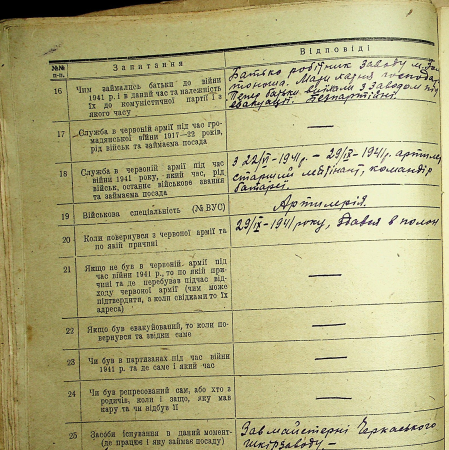 №№
п-п.
Запитання
Відповіді
16
Чим займались батьки до війни
1941 р. і в даний час та належність
їх до комуністичної партії і з
якого часу
Батько робітник заводу м.
Мати
Тепер батьки виїхали з заводом під
евакуації. Безпартійні
17
Служба в червоній армії під час гро-
мадянської війни 1917—22 років,
рід військ та займаєма посада
—
18
Служба в червоній армії під час
війни 1941 року, який час, рід
військ, останнє військове звання
та займаєма посада
З 22/VI-1941р. – 29/IX-1941р.
старший лейтінант, командір
батареї.
19
Військова спеціяльність (№ ВУС)
Артилерія.
20
Коли повернувся з червоної армії та
по якій причині
29/IX-1941 року, здався в полон
21
Якщо не був в червоній армії під
час війни 1941 р., то по якій при-
чині та де перебував підчас від-
ходу червоної армії (чим може
підтвердити, а коли свідками то їх
адреса)
—
22
Якщо був евакуйований, то коли по-
вернувся та звідки саме
—
23
Чи був в партизанах під час війни
1941 р. та де саме і який час
—
24
Чи був репресований сам, або хто з
родичів, коли і защо, яку мав
кару та чи відбув її
—
25
Засоби існування в даний момент-
(де працює і яку займає посаду)
Зав майстерні Черкаського
шкірзаводу –